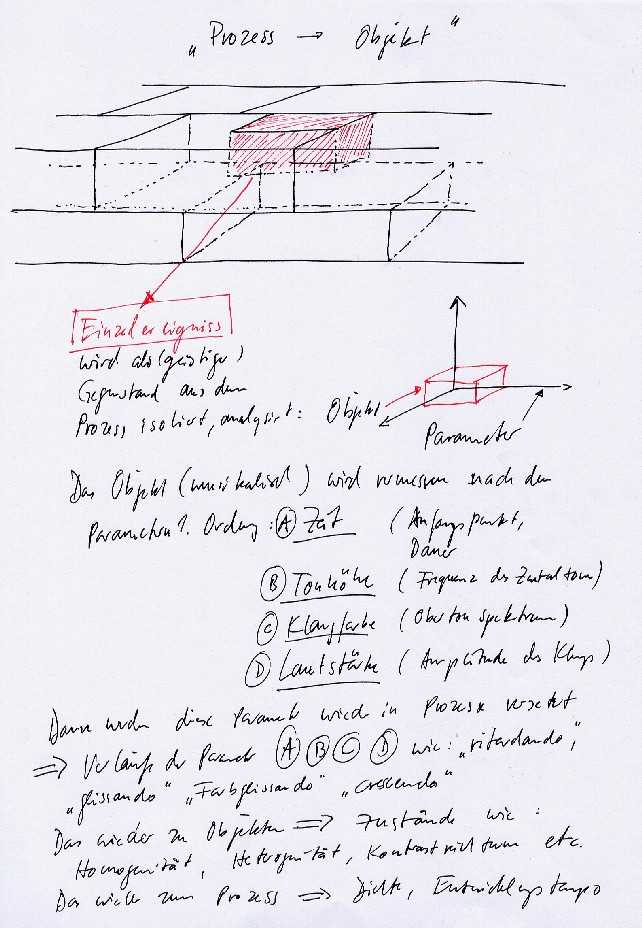 „Prozess → Objekt“
Einzelereigniss
wird als (geistiger)
Gegenstand aus dem
Prozess isoliert, analysiert: Objekt
Parameter
Das Objekt (musikalisch) wird vermessen nach den
Parametern 1. Ordnung: Ⓐ Zeit (Anfangspunkt,
Dauer
Ⓑ Tonhöhe (Frequenz des Zentraltons)
Ⓒ Klangfarbe (Obertonspektrum)
Ⓓ Lautstärke (Amplitude des Klangs)
Dann werden diese Parameter wieder in Prozesse versetzt
⇒ Verläufe der Parameter Ⓐ Ⓑ Ⓒ Ⓓ wie: „ritardando“,
„glissando“ „Farbglissando“ „crescendo“
Das wieder zu Objekten ⇒ Zustände wie:
Homogenität, Heterogenität, Kontrastreichtum etc.
Das wieder zum Prozess ⇒ Dichte, Entwicklungstempo